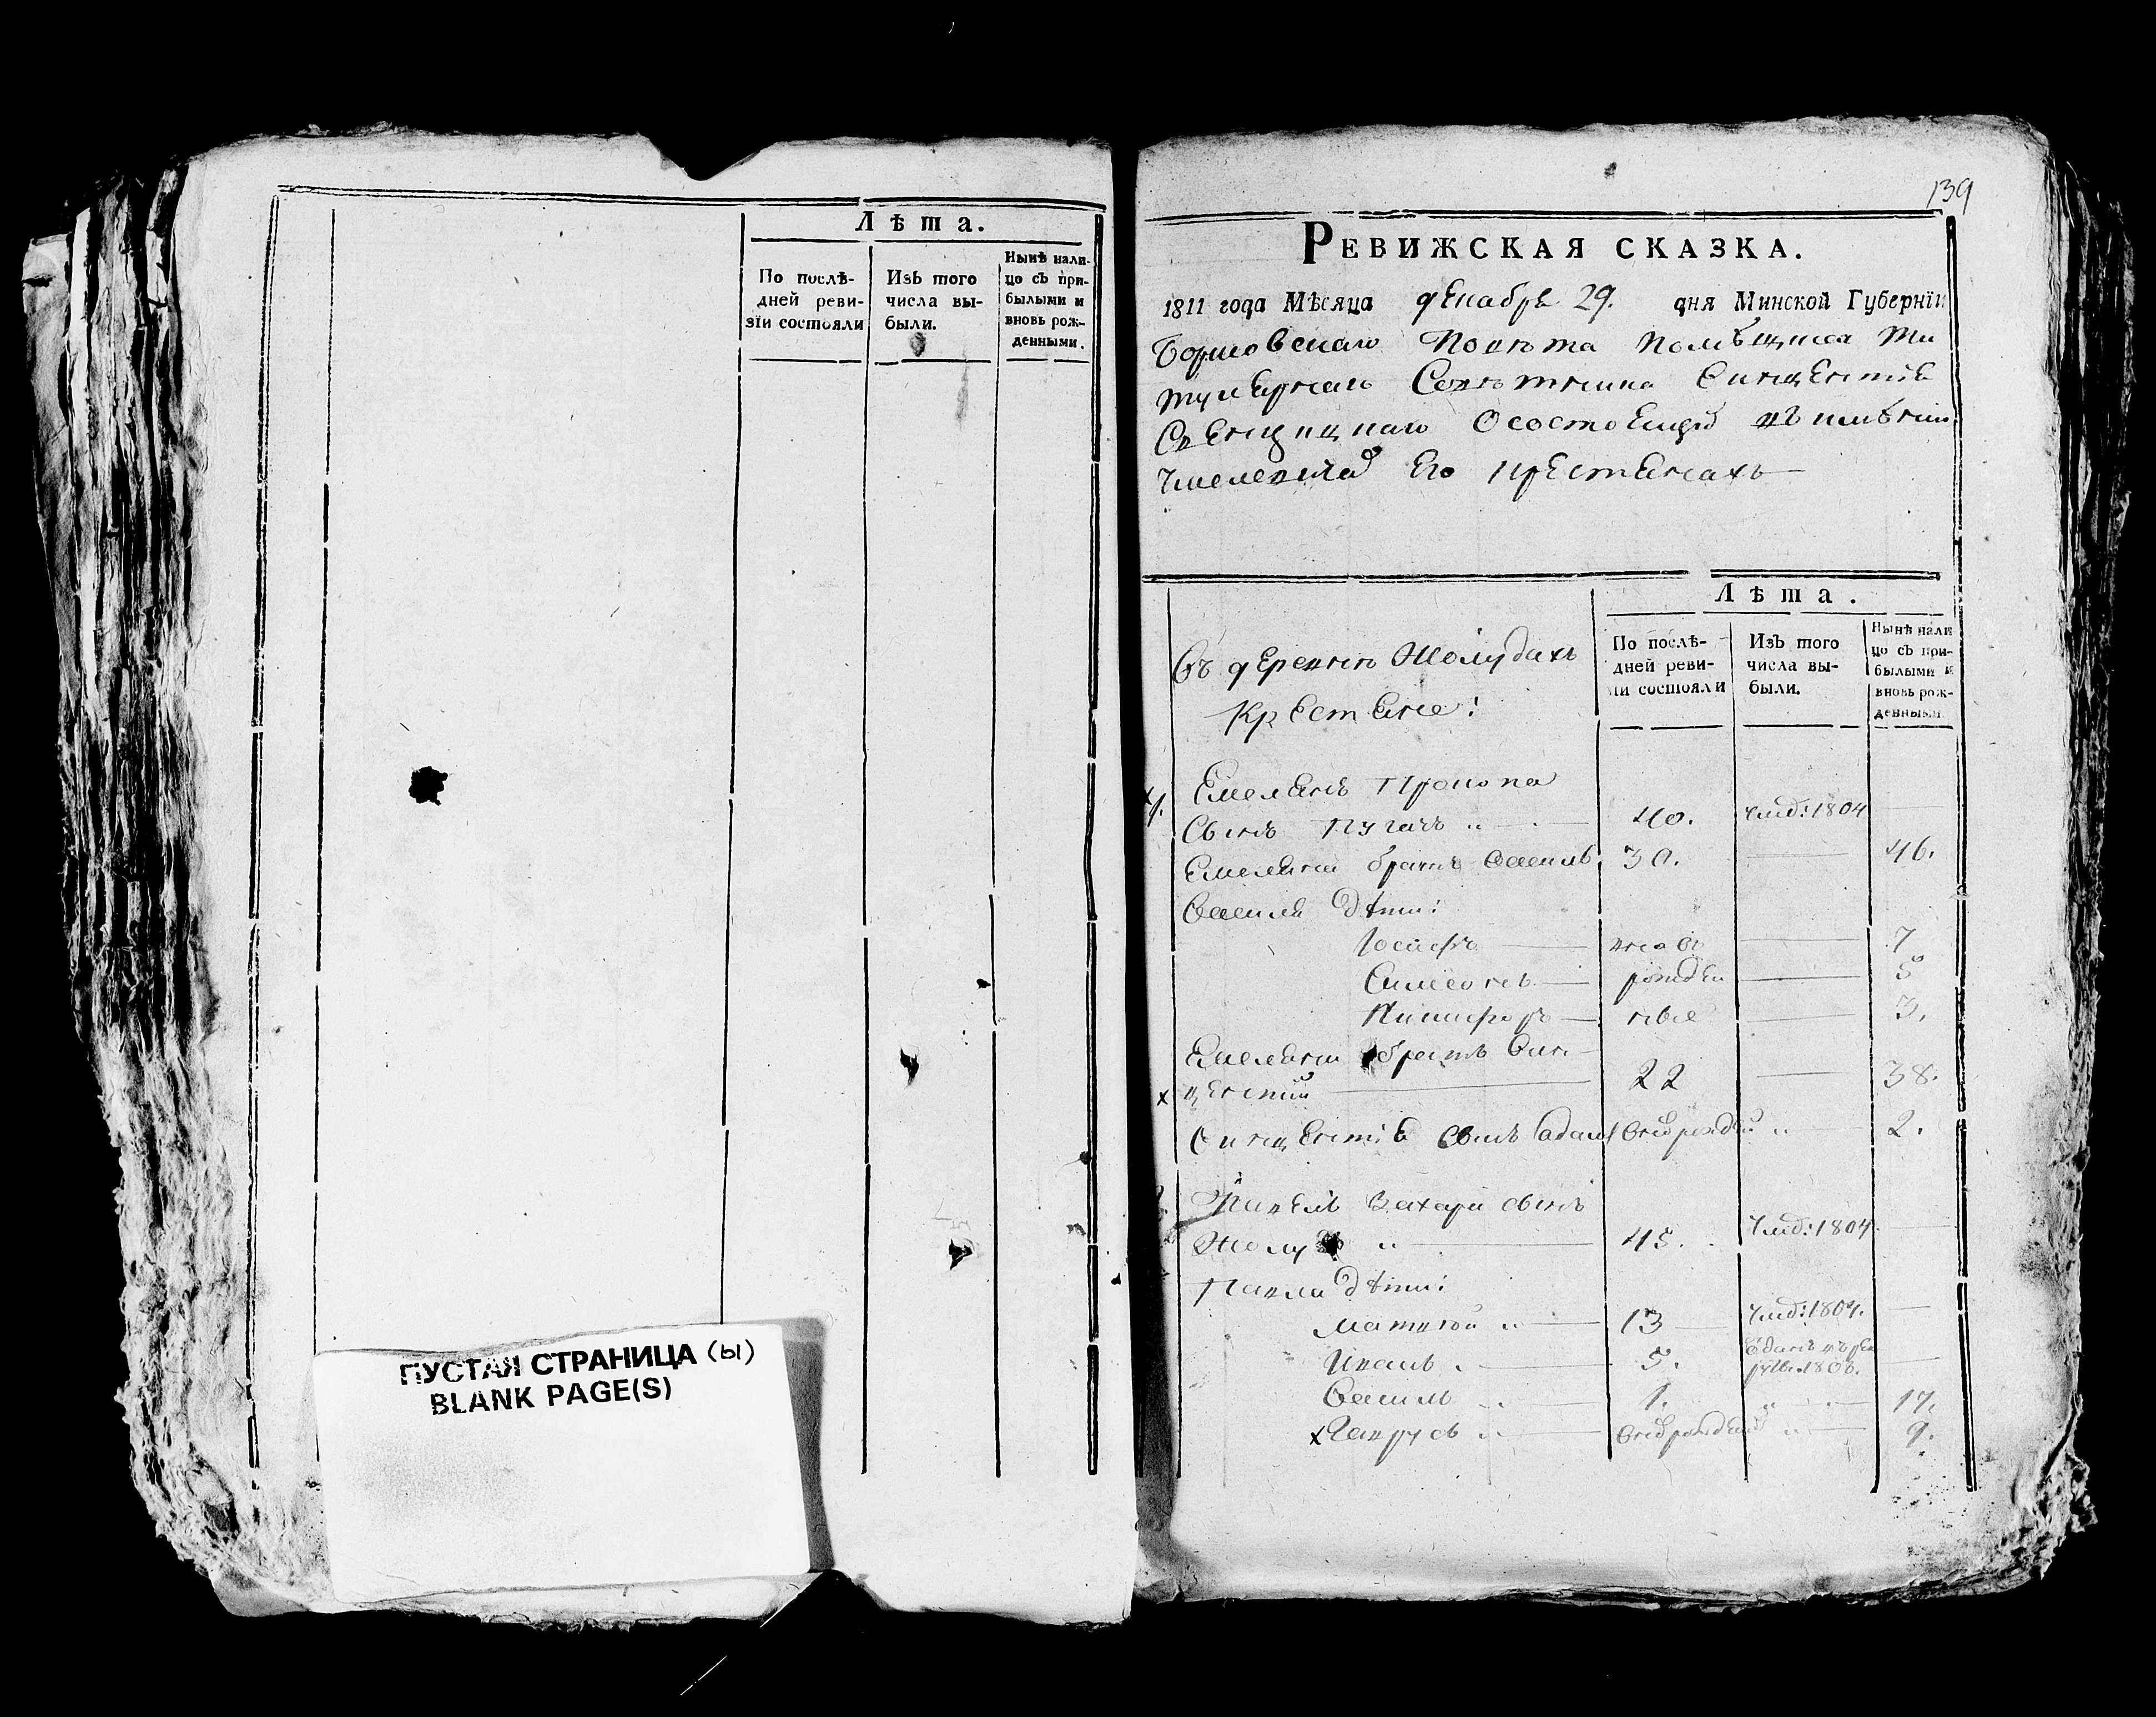 Лѣта.
По послѣ-
дней реви-
зїи состояли
Изъ того
числа вы-
были.
Нынѣ нали-
цо съ при-
былыми и
вновь рож-
денными.
ПУСТАЯ СТРАНИЦА (ы)
BLANK PAGE(S)
139
РЕВИЖСКАЯ СКАЗКА.
1811 года Мѣсяца декабря 29. дня Минской Губернїи
Борисовскаго Повѣта Помѣщика Ти
тулярнаго Совѣтника Викентія
Свенцицкаго О состоящихъ въ имѣнии
Его крестянахъ
Лѣта.
По послѣ-
дней реви-
зїи состояли
Изъ того
числа вы-
были.
Нынѣ нали
цо съ при-
былыми и
вновь рож-
денными.
Въ деревнѣ Жолудахъ
Крестяне:
Емелянъ Прокопа
Сынъ Пугачъ 40. Умд: 1804
Емеляна братъ Василь 30. 46.
Василя дѣти:
Іосифъ вновь 7
Симеонъ рожден 5
Никифоръ ные 3.
Емеляна братъ Вин-
центий 22 38.
Винцентія Сынъ Адам 2.
Павелъ Захари сынъ
45. Умд: 1804.
Павла дѣти:
Матвей 13 Умд: 1804.
Иванъ 5. Отданъ въ ре
круты 1806.
Василь 1. 17.
х Гаврусь 9.